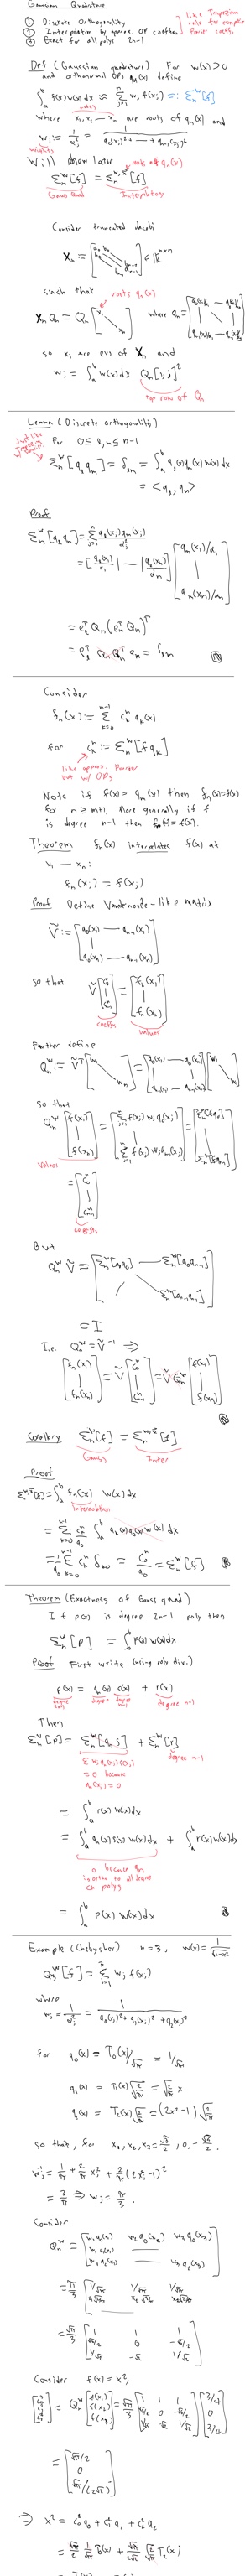 Gaussian Quadrature
① Discrete Orthogonality
② Interpolation by approx. OP coeffs
③ Exact for all polys 2n-1
like Trapezium rule for complex Fourier coeffs.
Def (Gaussian quadrature) For w(x)>0
and orthonormal OPs qₙ(x) define
∫ₐᵇ f(x)w(x)dx ≈ Σⱼ₌₁ⁿ wⱼ f(xⱼ) =: Σₙʷ[f]
nodes
where x₁, x₂ — xₙ are roots of qₙ(x) and
wⱼ := 1/αⱼ² = 1/(q₀(xⱼ)² + … + qₙ₋₁(xⱼ)²)
weights
Will show later
roots of qₙ(x)
Σₙʷ[f] = Σₙʷ,ˣ[f]
Gauss Quad Interpolatory
Consider truncated Jacobi
Xₙ = [a₀ b₀ … bₙ₋₂ bₙ₋₂ aₙ₋₁] ∈ ℝⁿˣⁿ
such that
roots qₙ(x)
Xₙ Qₙ = Qₙ [x₁ \ xₙ] where Qₙ =
so xⱼ are evs of Xₙ and
wⱼ = ∫ₐᵇ w(x)dx Qₙ[1,j]²
top row of Qₙ
Lemma (Discrete orthogonality)
For 0 ≤ l,m ≤ n-1
Σₙʷ[qₗqₘ] = δₗₘ = ∫ₐᵇ qₗ(x)qₘ(x)w(x)dx
= <qₗ, qₘ>
Proof
Σₙʷ[qₗqₘ] = Σⱼ₌₁ⁿ qₗ(xⱼ)qₘ(xⱼ)/αⱼ²
= [qₗ(x₁)/α₁ | — | qₗ(xₙ)/αₙ] [qₘ(x₁)/α₁ | qₘ(xₙ)/αₙ]
= eₗᵀ Qₙ (eₘᵀ Qₙ)ᵀ
= eₗᵀ Qₙ Qₙᵀ eₘ = δₗₘ
Consider
fₙ(x) := Σₖ₌₀ⁿ⁻¹ cₖⁿ qₖ(x)
for cₖⁿ := Σₙʷ[f qₖ]
like approx. Fourier but w/ OPs
Note if f(x) = qₘ(x) then fₙ(x)=f(x)
for n ≥ m+1. More generally if f
is degree n-1 then fₙ(x) = f(x).
Theorem fₙ(x) interpolates f(x) at
x₁ — xₙ:
fₙ(xⱼ) = f(xⱼ)
Proof Define Vandermonde-like matrix
Ṽ := [q₀(x₁) — qₙ₋₁(x₁) | q₀(xₙ) — qₙ₋₁(xₙ)]
so that
Ṽ [c₀ⁿ | cₙ₋₁ⁿ] = [fₙ(x₁) | fₙ(xₙ)]
coeffs values
Further define
Qₙʷ := Ṽᵀ [w₁ \ wₙ] = [q₀(x₁) — q₀(xₙ) | qₙ₋₁(x₁) — qₙ₋₁(xₙ)] [w₁ \ wₙ]
so that
Qₙʷ [f(x₁) | f(xₙ)] = [Σⱼ₌₁ⁿ f(xⱼ) wⱼ q₀(xⱼ) | Σⱼ₌₁ⁿ f(xⱼ) wⱼ qₙ₋₁(xⱼ)] = [Σₙʷ[f q₀] | Σₙʷ[f qₙ₋₁]]
values
= [c₀ⁿ | cₙ₋₁ⁿ]
coeffs
But
Qₙʷ Ṽ = [Σₙʷ[q₀q₀] — Σₙʷ[q₀qₙ₋₁] … Σₙʷ[qₙ₋₁qₙ₋₁]]
= I
I.e. Qₙʷ = Ṽ⁻¹ ⇒
[fₙ(x₁) | fₙ(xₙ)] = Ṽ [c₀ⁿ | cₙ₋₁ⁿ] = Ṽ Qₙʷ [f(x₁) | f(xₙ)]
Corollary Σₙʷ[f] = Σₙʷ,ˣ[f]
Gauss Inter
Proof
Σₙʷ,ˣ[f] = ∫ₐᵇ fₙ(x) w(x)dx
Interpolation
= Σₖ₌₀ⁿ⁻¹ cₖⁿ/q₀ ∫ₐᵇ qₖ(x) q₀(x) w(x) dx
= 1/q₀ Σₖ₌₀ⁿ⁻¹ cₖⁿ δₖ₀ = c₀ⁿ/q₀ = Σₙʷ[f]
Theorem (Exactness of Gauss quad)
If p(x) is degree 2n-1 poly then
Σₙʷ[p] = ∫ₐᵇ p(x) w(x)dx
Proof First write (using poly div.)
p(x) = qₙ(x) s(x) + r(x)
degree 2n-1 degree n degree n-1 degree n-1
Then
Σₙʷ[p] = Σₙʷ[qₙ s] + Σₙʷ[r]
degree n-1
Σ wⱼ qₙ(xⱼ) s(xⱼ)
= 0 because
qₙ(xⱼ) = 0
= ∫ₐᵇ r(x) w(x)dx
= ∫ₐᵇ qₙ(x) s(x) w(x)dx + ∫ₐᵇ r(x) w(x)dx
0 because qₙ
is ortho to all degree
<n polys
= ∫ₐᵇ p(x) w(x)dx
Example (Chebyshev) n=3, w(x) = 1/√(1-x²)
Q₃ʷ[f] = Σⱼ₌₁³ wⱼ f(xⱼ)
where
wⱼ = 1/αⱼ² = 1/(q₀(xⱼ)² + q₁(xⱼ)² + q₂(xⱼ)²)
for q₀(x) = T₀(x)/√π = 1/√π
q₁(x) = T₁(x)√(2/π) = √(2/π) x
q₂(x) = T₂(x)√(2/π) = (2x²-1)√(2/π)
so that, for x₁, x₂, x₃ = √3/2, 0, -√3/2.
wⱼ⁻¹ = 1/π + 2/π xⱼ² + 2/π (2xⱼ²-1)²
= 3/π ⇒ wⱼ = π/3.
Consider
Qₙʷ = [w₁ q₀(x₁) w₂ q₀(x₂) w₃ q₀(x₃) | w₁ q₁(x₁) — | w₁ q₂(x₁) — w₃ q₂(x₃)]
= π/3 [1/√π 1/√π 1/√π
= √π/3 [1 1 1 | √6/2 0 -√6/2 | 1/√2 -√2 1/√2]
Consider f(x) = x²,
[c₀³ | c₁³ | c₂³] = Qₙʷ [f(x₁) | f(x₂) | f(x₃)] = √π/3 [1 1 1 | √6/2 0 -√6/2 | 1/√2 -√2 1/√2] [3/4 | 0 | 3/4]
= [√π/2 | 0 | √π/(2√2)]
⇒ x² = c₀³ q₀ + c₁³ q₁ + c₂³ q₂
= √π/2 1/√π T₀(x) + √π/(2√2) √(2/π) T₂(x)